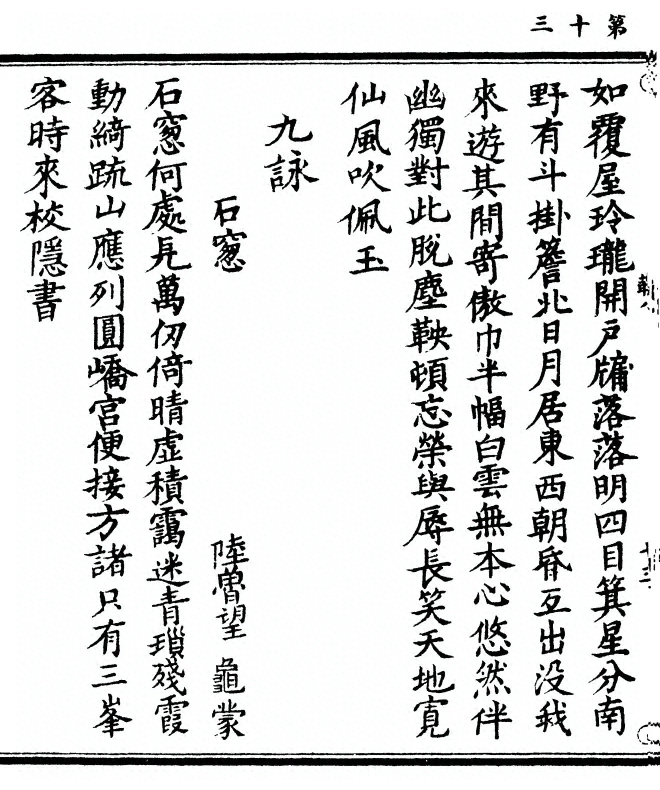 第十三
如覆屋玲瓏開戸牖落落明四目箕星分南
野有斗掛簷北日月居東西朝昏互出没我
來遊其間寄傲巾半幅白雲無本心悠然伴
幽獨對此脫塵鞅頓忘榮與辱長笑天地寛
仙風吹佩玉
九詠
石窻
陸魯望 龜蒙
石窻何處見萬仞倚晴虛積靄迷青瑣殘霞
動綺疏山應列圓嶠宫便接方諸只有三峯
客時來校隱書